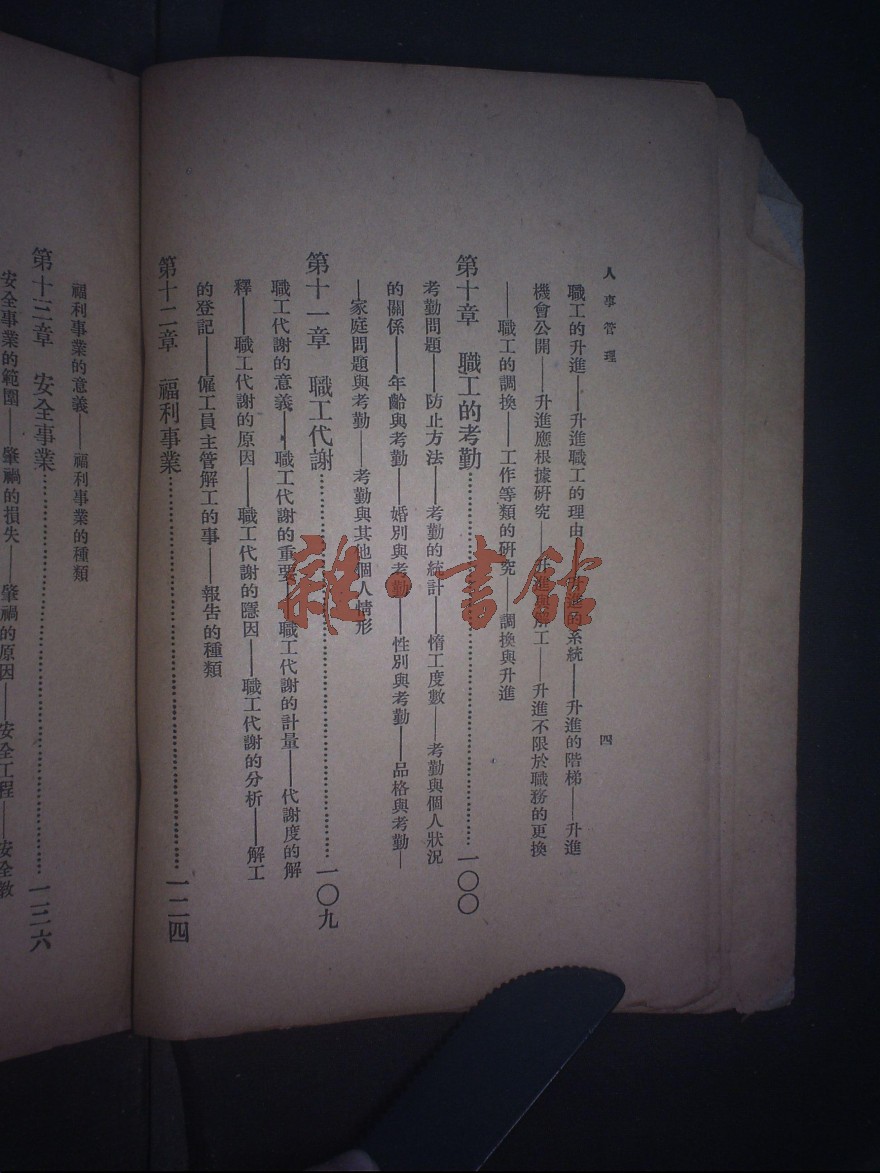 人事管理
四
職工的升進——升進職工的理由——升進的系統——升進的階梯——升進
機會公開——升進應根據研究——升進與解工——升進不限於職務的更換
——職工的調換——工作等類的研究——調換與升進
第十章　職工的考勤…………一〇〇
考勤問題——防止方法——考勤的統計——惰工度數——考勤與個人狀況
的關係——年齡與考勤——婚別與考勤——性別與考勤——品格與考勤—
—家庭問題與考勤——考勤與其他個人情形
第十一章　職工代謝…………一〇九
職工代謝的意義——職工代謝的重要——職工代謝的計量——代謝度的解
釋——職工代謝的原因——職工代謝的隱因——職工代謝的分析——解工
的登記——僱工員主管解工的事——報告的種類
第十二章　福利事業…………一二四
福利事業的意義——福利事業的種類
第十三章　安全事業…………一三六
安全事業的範圍——肇禍的損失——肇禍的原因——安全工程——安全教
雜·書館